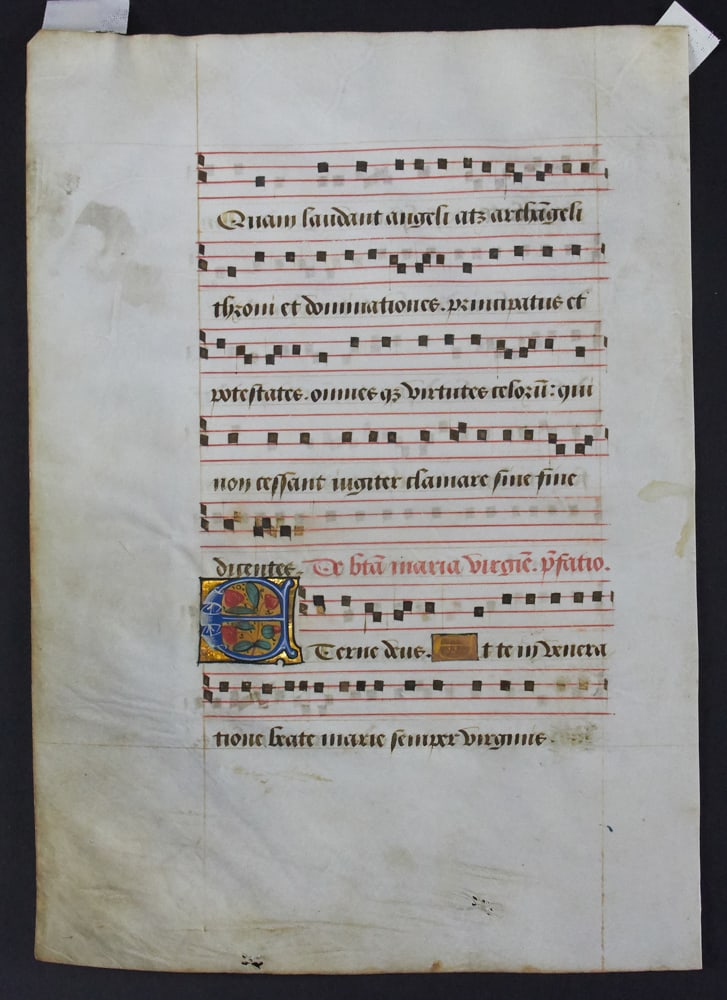 Quam laudant angeli atqꝫ archāgeli
throni et dominationes. principatus et
potestates. omnes qꝫ virtutes celorū: qui
non cessant iugiter clamare sine fine
dicentes. De btā maria virgiē. p̄fatio.
ETerne deus. Et te in venera
tione beate marie semper virginis.